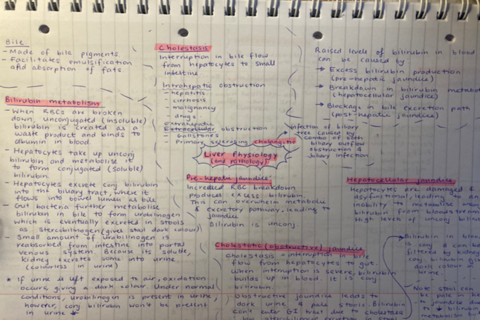 Bile
- Made of bile pigments
- Facilitates emulsification
and absorption of fats
Bilirubin metabolism
- When RBCs are broken
down, unconjugated (insoluble)
bilirubin is created as a
waste product and binds to
albumin in blood
- Hepatocytes take up unconj
bilirubin and metabolise it
to form conjugated (soluble)
bilirubin
- Hepatocytes excrete conj bilirubin
into the biliary tract, where it
flows into bowel lumen as bile
- Gut bacteria further metabolise
bilirubin in bile to form urobilinogen
which is eventually excreted in stools
as stercobilinogen (gives stool dark colour)
- Small amount of urobilinogen is
reabsorbed from intestine into portal
venous system. Because its soluble,
kidney excretes some into urine
(colourless in urine)
* If urine is left exposed to air, oxidation
occurs, giving a dark colour. Under normal
conditions, urobilinogen is present in urine,
however, conj bilirubin won't be present
in urine
Cholestasis
Interruption in bile flow
from hepatocytes to small
intestine
Intrahepatic obstruction
- hepatitis
- cirrhosis
- malignancy
- drugs
Extrahepatic obstruction
- Primary sclerosing cholangitis
Liver Physiology
(and pathology)
Infection of biliary
tree caused by
combo of both
biliary outflow
obstruction &
biliary infection
Pre-hepatic jaundice
Increased RBC breakdown
produces excess bilirubin.
This can overwhelm metabolic
& excretory pathway, leading to
jaundice
Bilirubin is unconj
Cholestatic (obstructive) jaundice
Cholestasis = interruption
flow from hepatocytes to gut.
When interruption is severe, bilirubin
builds up in blood. It is conj
Obstructive jaundice leads to
dark urine & pale stools. Bilirubin
can't enter GI tract due to cholestasis
Raised levels of bilirubin in blood
can be caused by
→ Excess bilirubin production
(pre-hepatic jaundice)
→ Breakdown in bilirubin metabol
(hepatocellular jaundice)
→ Blockage in bile excretion path
(post-hepatic jaundice)
Hepatocellular jaundice
Hepatocytes are damaged &
dysfunctional, leading to an
inability to metabolise
bilirubin from bloodstream
high levels of unconj bilirubin
Bilirubin in blood
is conj & can be
filtered by kidney
conj bilirubin is
dark colour of
urine
Note: stool can
be pale in